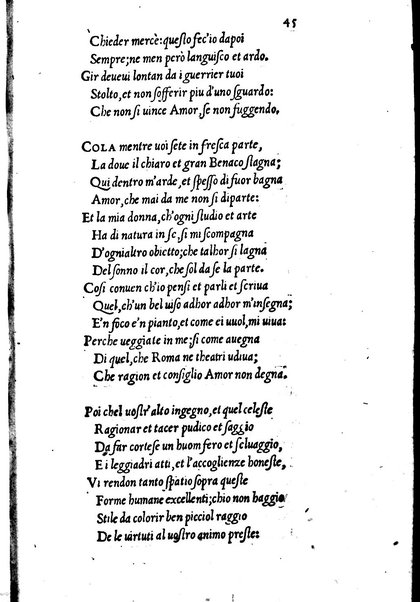 45
Chieder mercè: questo fec'io dapoi
Sempre; ne men però languisco et ardo.
Gir deueui lontan da i guerrier tuoi
Stolto, et non sofferir piu d'uno sguardo:
Che non si uince Amor, se non fuggendo.
COLA mentre uoi sete in fresca parte,
La doue il chiaro et gran Benaco stagna;
Qui dentro m'arde, et spesso di fuor bagna
Amor, che mai da me non si diparte:
Et la mia donna, ch'ogni studio et arte
Ha di natura in se, si mi scompagna
D'ognialtro obietto; che talhor si lagna
Del sonno il cor, che sol da se la parte.
Cosi conuen ch'io pensi et parli et scriua
Quel, ch'un bel uiso adhor adhor m'insegna;
E'n foco e'n pianto, et come ei uuol, mi uiua:
Perche ueggiate in me; si come auegna
Di quel, che Roma ne theatri udiua;
Che ragion et consiglio Amor non degna.
Poi chel uostr'alto ingegno, et quel celeste
Ragionar et tacer pudico et saggio
Da far cortese un huom fero et seluaggio,
E i leggiadri atti, et l'accoglienze honeste,
Vi rendon tanto spatio sopra queste
Forme humane excellenti; chio non haggio
Stile da colorir ben picciol raggio
De le uirtuti al uostro animo preste: